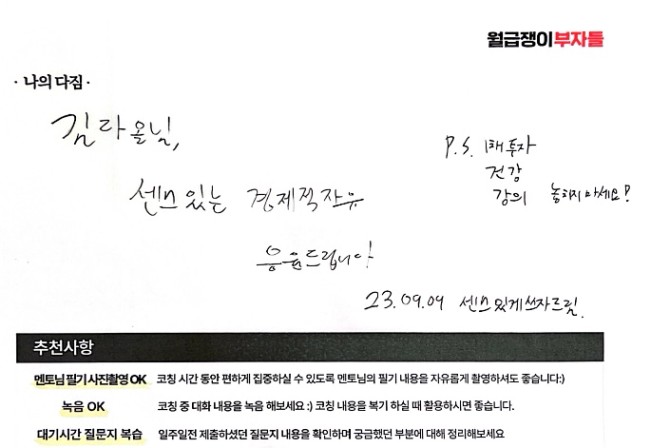 월급쟁이부자들
· 나의 다짐 ·
김다올님,
센스 있는 경제적 자유
응원드립니다
P.S. 1배투자
건강
강의 놓하지마세요!
23.09.09 센스있게쓰자드림.
추천사항
멘토님 필기 사진촬영 OK 코칭 시간 동안 편하게 집중하실 수 있도록 멘토님의 필기 내용을 자유롭게 촬영하셔도 좋습니다:)
녹음 OK 코칭 중 대화 내용을 녹음 해보세요 :) 코칭 내용을 복기 하실 때 활용하시면 좋습니다.
대기시간 질문지 복습 일주일전 제출하셨던 질문지 내용을 확인하며 궁금했던 부분에 대해 정리해보세요